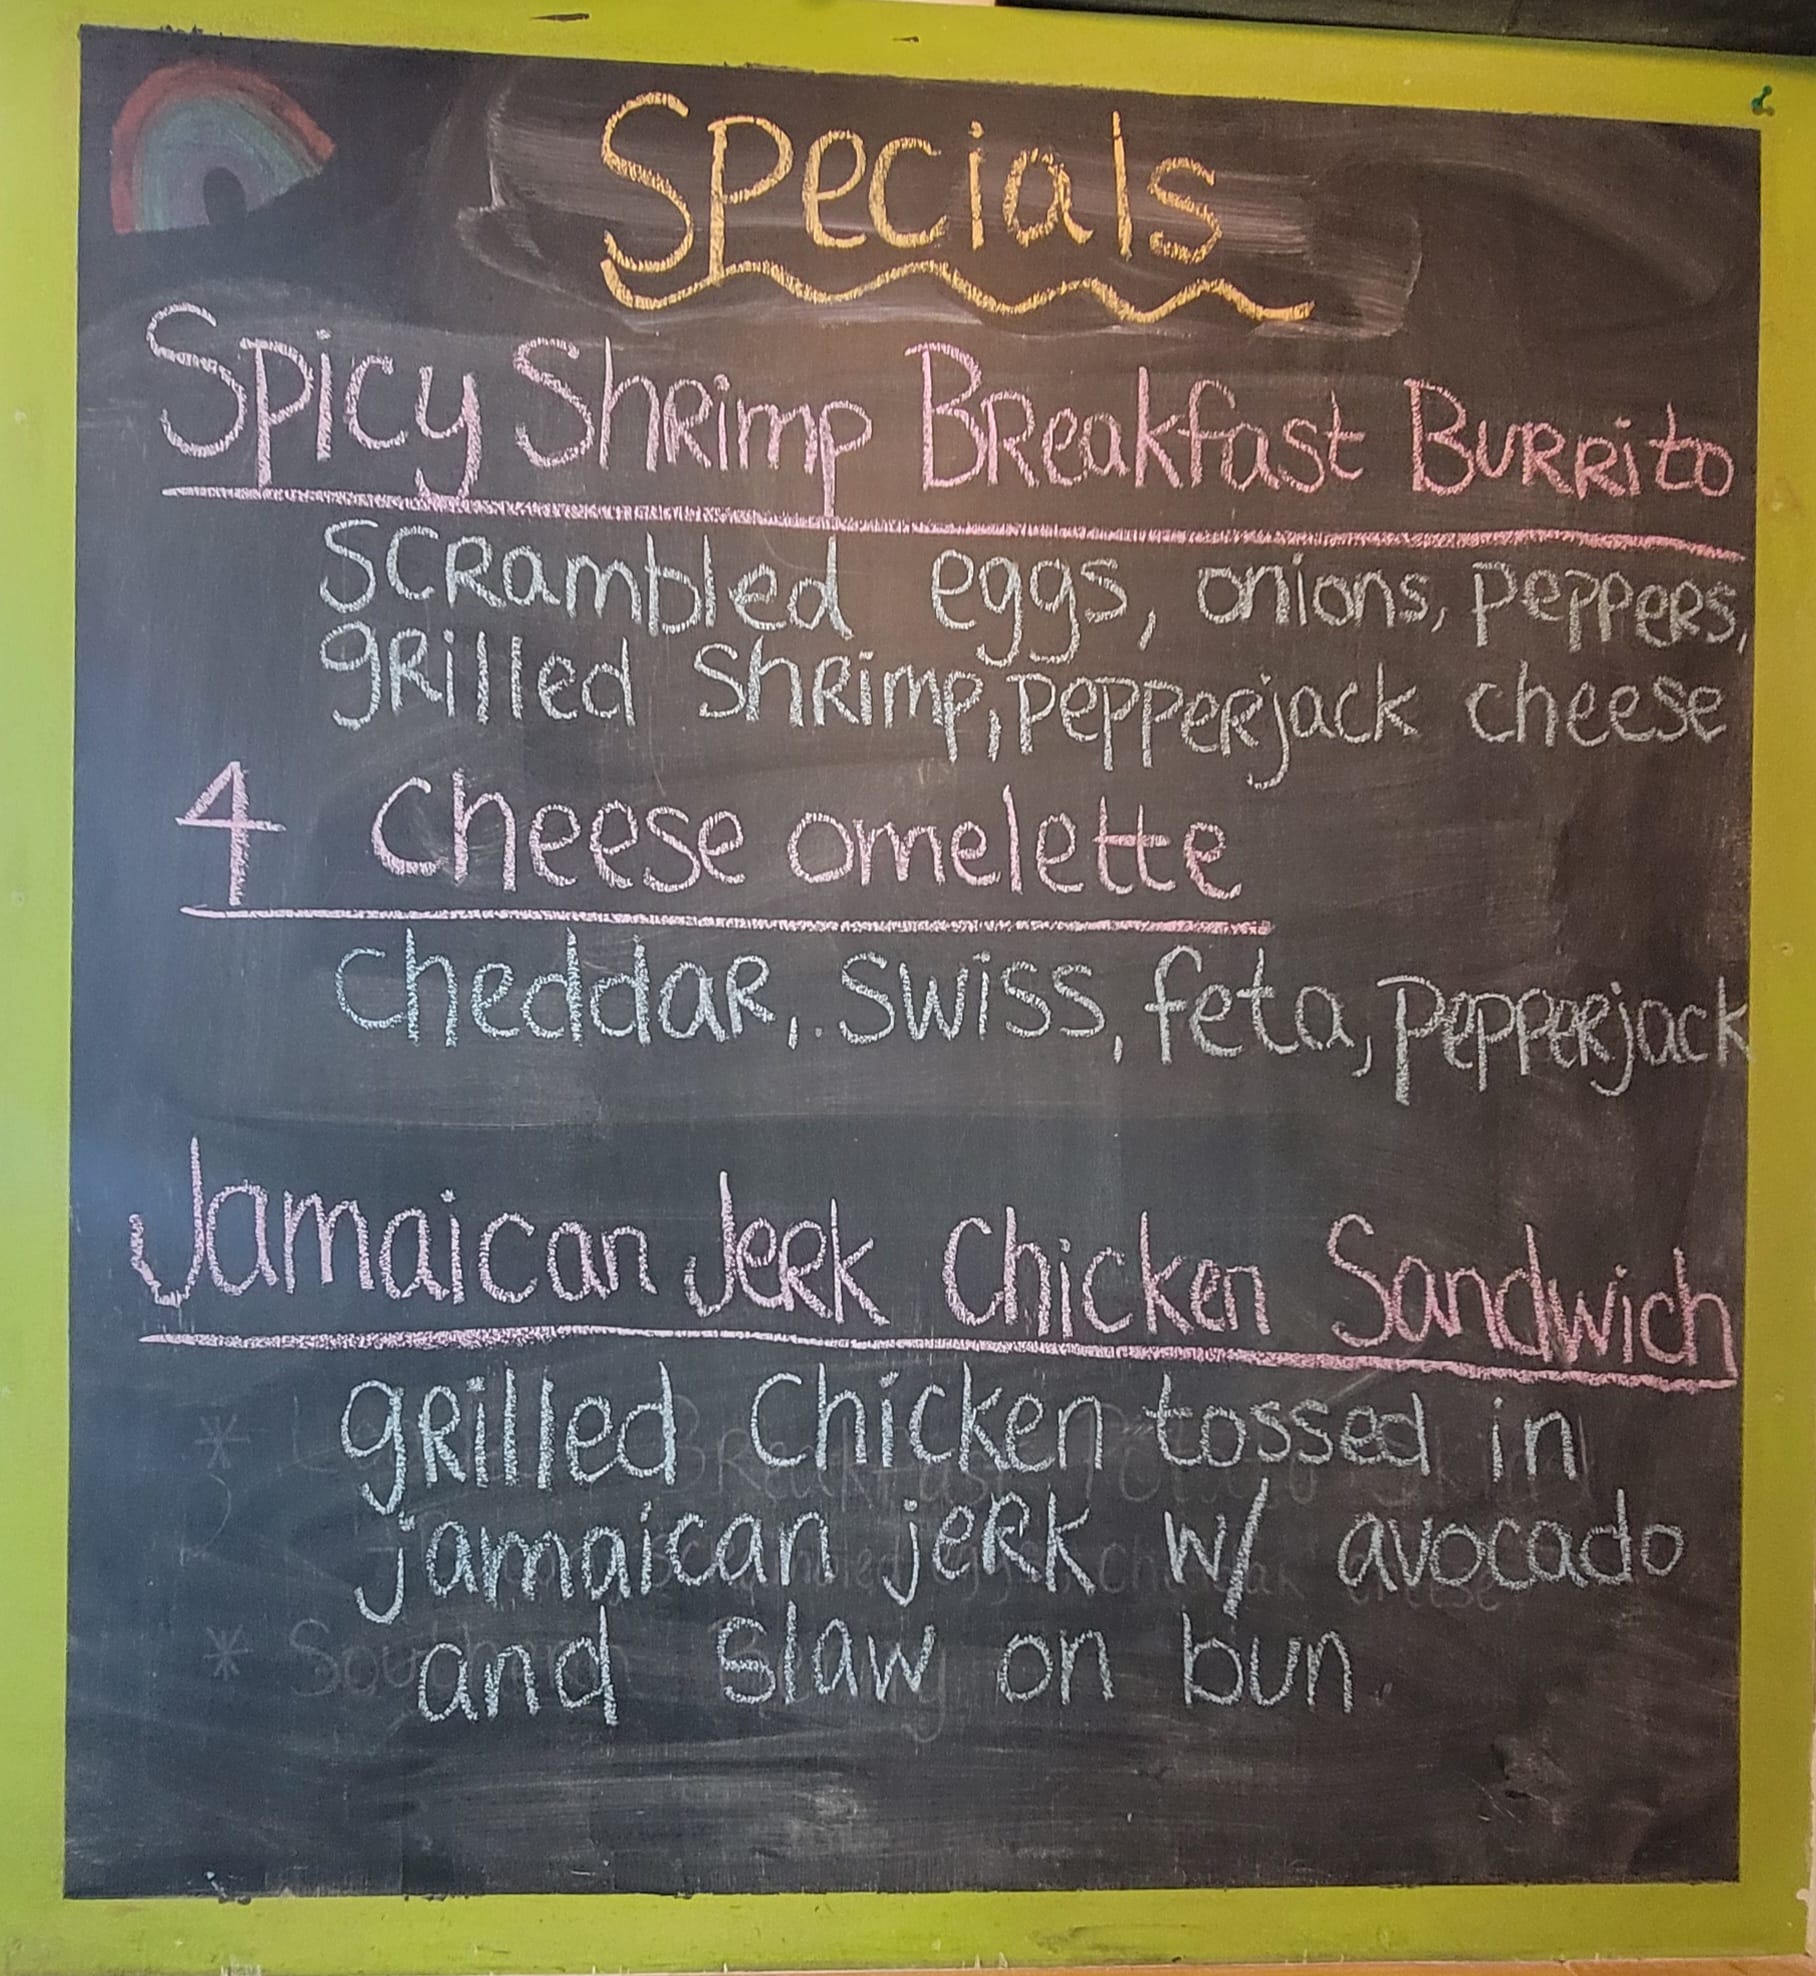 Specials
Spicy Shrimp Breakfast Burrito
scrambled eggs, onions, peppers,
grilled shrimp, pepperjack cheese
4 Cheese omelette
cheddar, swiss, feta, pepperjack
Jamaican Jerk Chicken Sandwich
grilled chicken tossed in
jamaican jerk w/ avocado
and slaw on bun